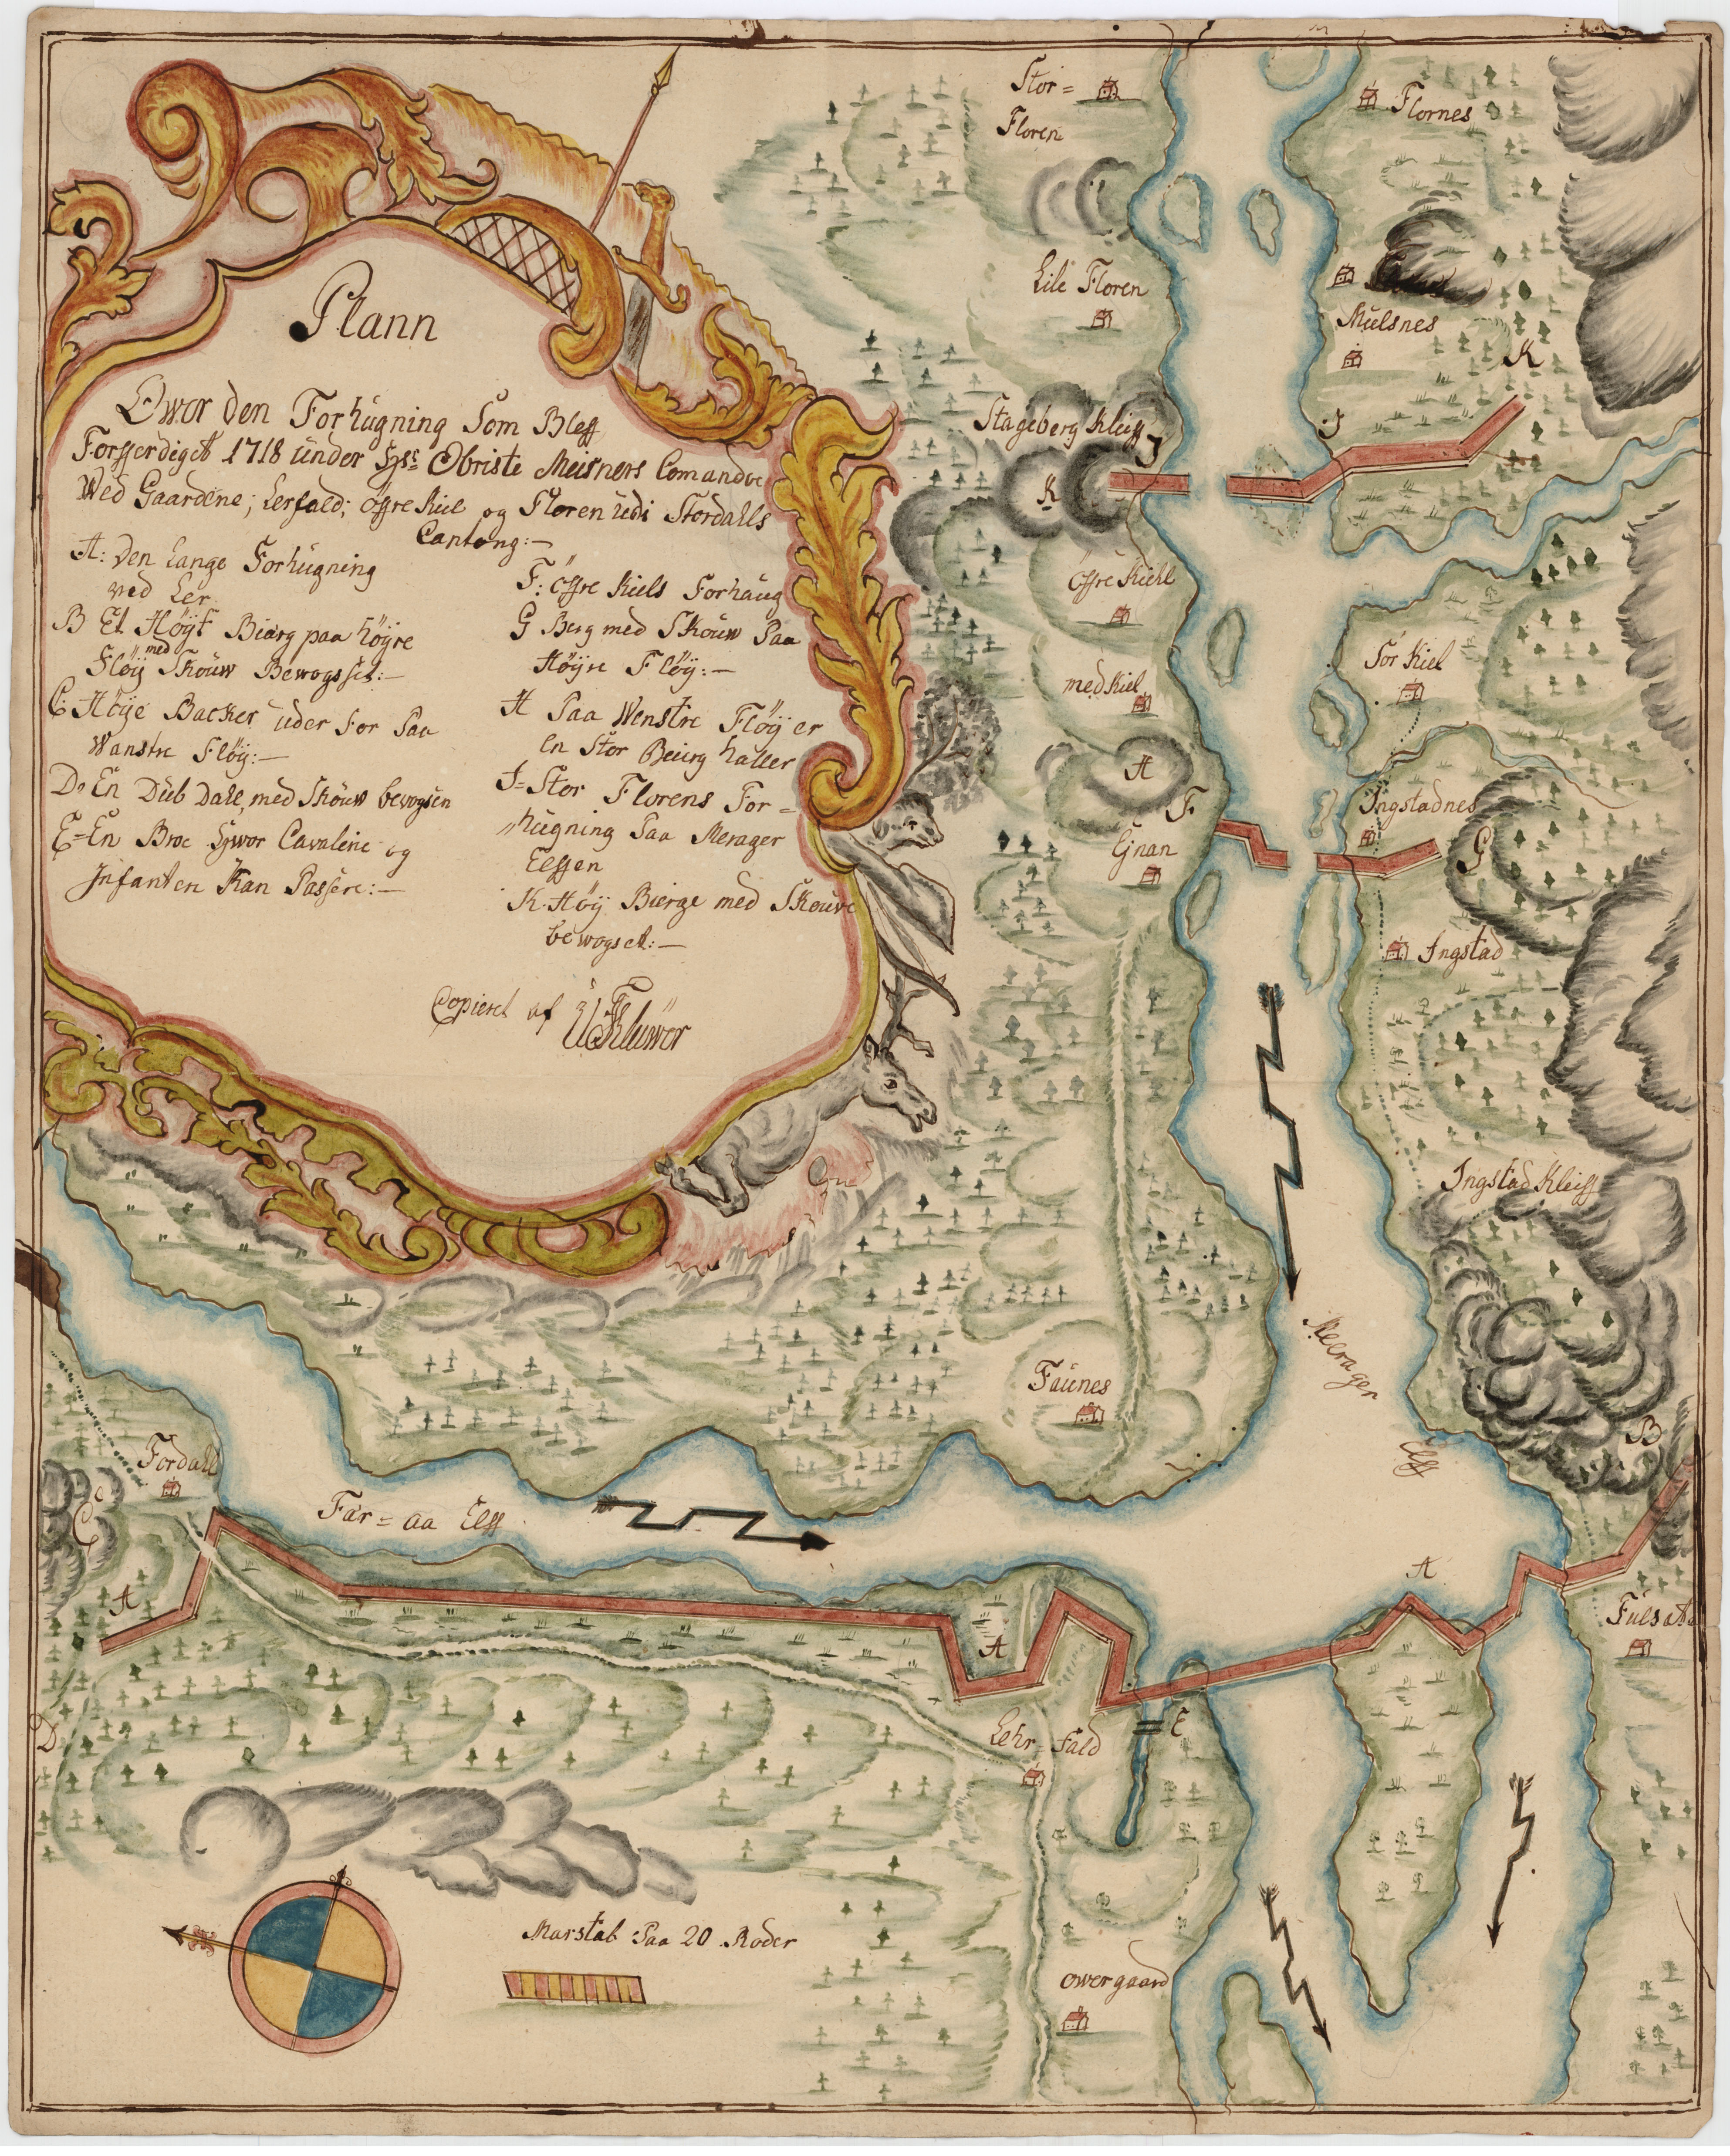 Plann
Owor den Forhúgning Som Bleff
Forfferdiget 1718 únder Obriste Meisners Comando
Wed Gaardene; Lerfald; öffre Kiel og Floren údi Stordalls
Cantong:—
A: Den Lange Forhúgning
wed Ler
B Et Höÿt Biærg paa höÿre
Flöÿ med Skoúw Bewogsset:—
C: Höÿe Backer úder for Paa
Wanstre Flöÿ:—
D: En Dúb Dall, med Skoúw bewogsen
E= En Broe Hwor Cavalerie og
Infanteri Kan Passere:—
F: öffre Kiels Forhaúg
G Berg med Skoúw Paa
Höÿre Flöÿ:—
H Paa Wenstre Flöÿ er
en Stor Beiirg haller
J= Stor Florens For=
húgning Paa Merager
Elffen
K Höÿ Bierge med Skoúw
bewogset:—
Copieret af Klüwer
Stor=
Floren
Flornes
Lile Floren
Múlsnes
K
J
Stageberg Kleiff
J
K
öffre Kiehl
Sor Kiel
med Kiel
H
F
Ingstadnes
G
Gjnan
Ingstad
Ingstad Kleiff
Faúnes
Meerager
Elff
B
Fordall
C
Far=aa Elff
A
A
A
Fúlsat
D
Lehr=Fald
E
Marstab Paa 20 Roder
owergaard